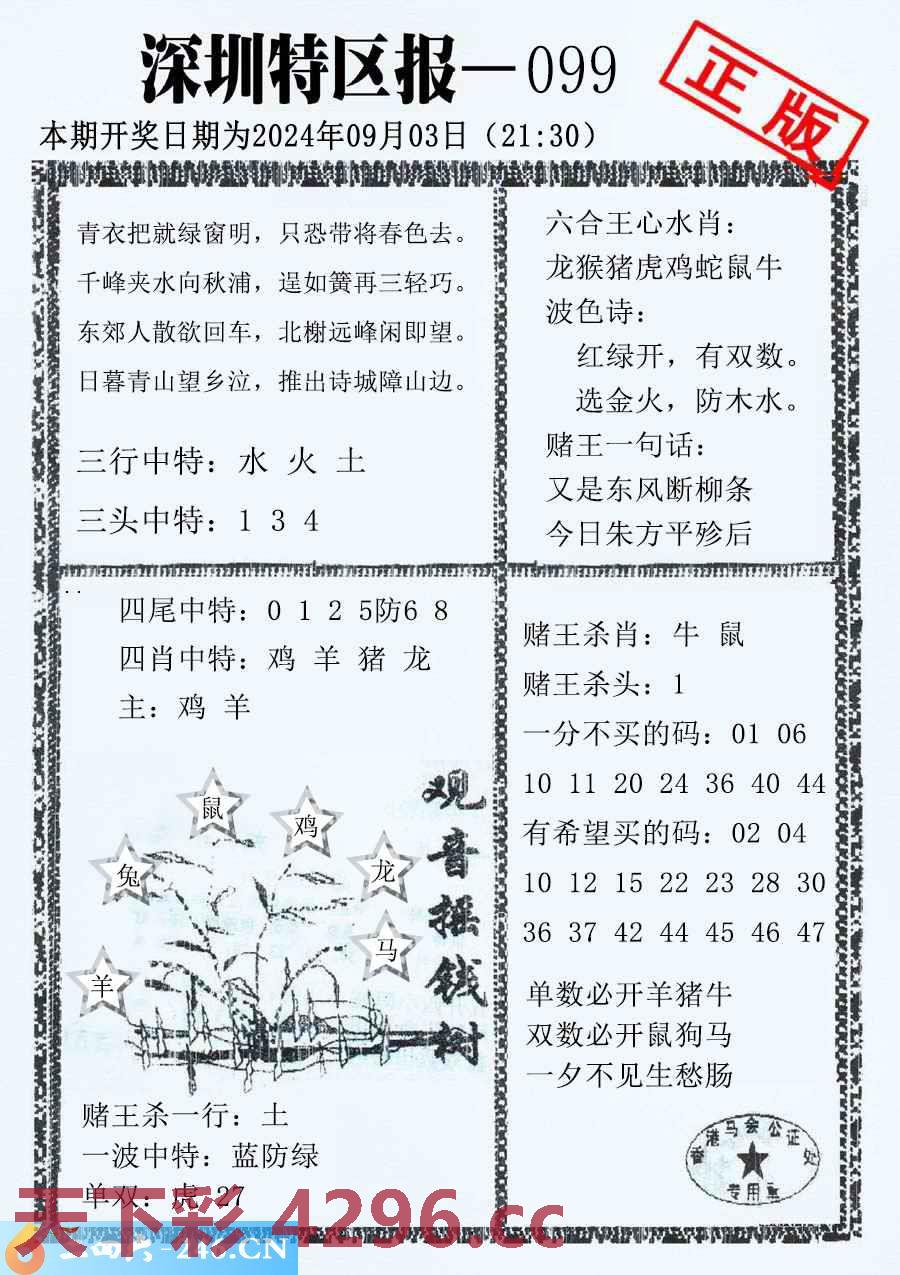 深圳特区报—099
正版
本期开奖日期为2024年09月03日（21:30）
青衣把就绿窗明，只恐带将春色去。
千峰夹水向秋浦，逞如簧再三轻巧。
东郊人散欲回车，北榭远峰闲即望。
日暮青山望乡泣，推出诗城障山边。
三行中特：水 火 土
三头中特：1 3 4
六合王心水肖：
龙猴猪虎鸡蛇鼠牛
波色诗：
红绿开，有双数。
选金火，防木水。
赌王一句话：
又是东风断柳条
今日朱方平殄后
四尾中特：0 1 2 5防6 8
四肖中特：鸡 羊 猪 龙
主：鸡 羊
鼠
鸡
兔
龙
马
羊
观音摇钱树
赌王杀一行：土
一波中特：蓝防绿
单双：虎 27
赌王杀肖：牛 鼠
赌王杀头：1
一分不买的码：01 06
10 11 20 24 36 40 44
有希望买的码：02 04
10 12 15 22 23 28 30
36 37 42 44 45 46 47
单数必开羊猪牛
双数必开鼠狗马
一夕不见生愁肠
香港马会公证处
专用章
天下彩 4296.cc